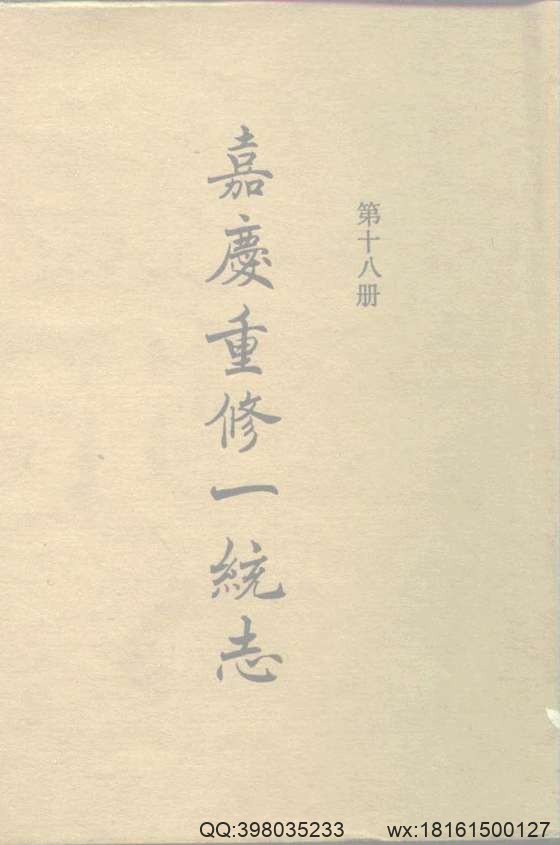 第十八册
嘉慶重修一統志
QQ:398035233 wx:18161500127